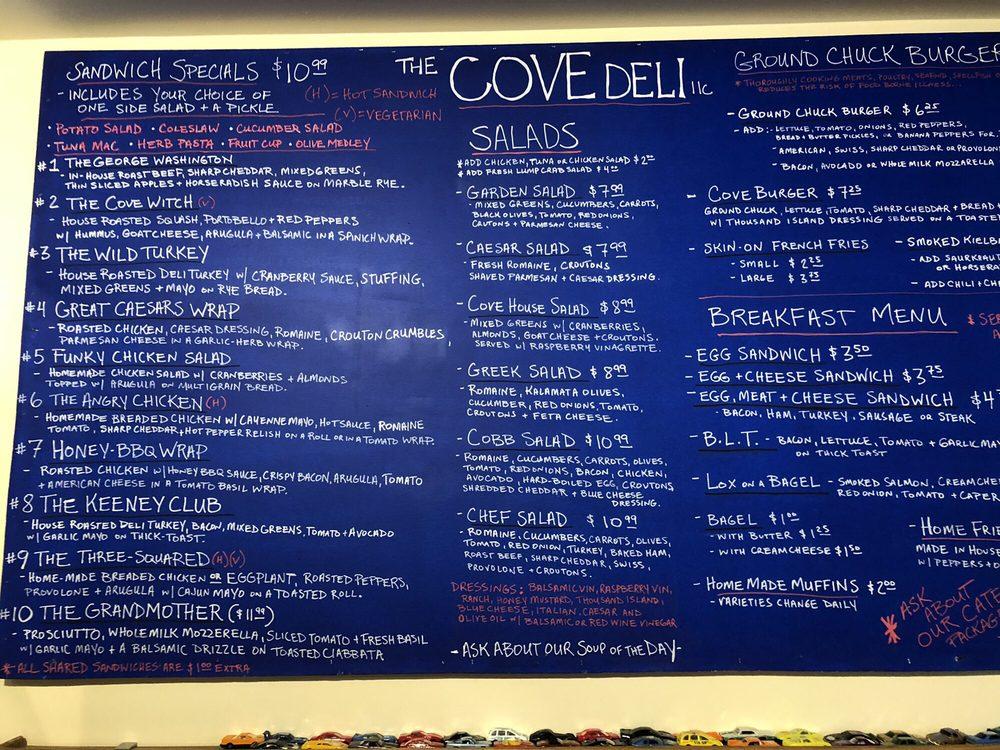 SANDWICH SPECIALS $10.99
- INCLUDES YOUR CHOICE OF
ONE SIDE SALAD + A PICKLE
(H) = HOT SANDWICH
(V) = VEGETARIAN
· POTATO SALAD · COLESLAW · CUCUMBER SALAD
· TUNA MAC · HERB PASTA · FRUIT CUP · OLIVE MEDLEY
#1 THE GEORGE WASHINGTON
- IN-HOUSE ROAST BEEF, SHARP CHEDDAR, MIXED GREENS,
THIN SLICED APPLES + HORSERADISH SAUCE ON MARBLE RYE.
#2 THE COVE WITCH (V)
- HOUSE ROASTED SQUASH, PORTOBELLO + RED PEPPERS
W/ HUMMUS, GOAT CHEESE, ARUGULA + BALSAMIC IN A SANICH WRAP.
#3 THE WILD TURKEY
- HOUSE ROASTED DELI TURKEY W/ CRANBERRY SAUCE, STUFFING,
MIXED GREENS + MAYO ON RYE BREAD.
#4 GREAT CAESARS WRAP
- ROASTED CHICKEN, CAESAR DRESSING, ROMAINE, CROUTON CRUMBLES,
PARMESAN CHEESE IN A GARLIC-HERB WRAP.
#5 FUNKY CHICKEN SALAD
- HOMEMADE CHICKEN SALAD W/ CRANBERRIES + ALMONDS
TOPPED W/ ARUGULA ON MULTIGRAIN BREAD.
#6 THE ANGRY CHICKEN (H)
- HOMEMADE BREADED CHICKEN W/ CAYENNE MAYO, HOT SAUCE, ROMAINE
TOMATO, SHARP CHEDDAR, HOT PEPPER RELISH ON A ROLL OR IN A TOMATO WRAP.
#7 HONEY-BBQ WRAP
- ROASTED CHICKEN W/ HONEY BBQ SAUCE, CRISPY BACON, ARUGULA, TOMATO
+ AMERICAN CHEESE IN A TOMATO BASIL WRAP.
#8 THE KEENEY CLUB
- HOUSE ROASTED DELI TURKEY, BACON, MIXED GREENS, TOMATO + AVOCADO
W/ GARLIC MAYO ON THICK-TOAST.
#9 THE THREE-SQUARED (H)(V)
- HOME-MADE BREADED CHICKEN OR EGGPLANT, ROASTED PEPPERS,
PROVOLONE + ARUGULA W/ CAJUN MAYO ON A TOASTED ROLL.
#10 THE GRANDMOTHER ($11.99)
- PROSCIUTTO, WHOLE MILK MOZZERELLA, SLICED TOMATO + FRESH BASIL
W/ GARLIC MAYO + A BALSAMIC DRIZZLE ON TOASTED CIABBATA
* ALL SHARED SANDWICHES ARE $1.00 EXTRA
THE COVE DELI LLC
SALADS
* ADD CHICKEN, TUNA OR CHICKEN SALAD
* ADD FRESH LUMP CRAB SALAD
- GARDEN SALAD $7.99
- MIXED GREENS, CUCUMBERS, CARROTS,
BLACK OLIVES, TOMATO, RED ONIONS,
CRUTONS + PARMESAN CHEESE.
- CAESAR SALAD $7.99
- FRESH ROMAINE, CROUTONS
SHAVED PARMESAN + CAESAR DRESSING.
- COVE HOUSE SALAD $8.99
- MIXED GREENS W/ CRANBERRIES,
ALMONDS, GOAT CHEESE + CROUTONS.
SERVED W/ RASPBERRY VINAGRETTE.
- GREEK SALAD $8.99
- ROMAINE, KALAMATA OLIVES,
CUCUMBER, RED ONIONS, TOMATO,
CROUTONS + FETA CHEESE.
- COBB SALAD $10.99
- ROMAINE, CUCUMBERS, CARROTS, OLIVES,
TOMATO, RED ONIONS, BACON, CHICKEN,
AVOCADO, HARD-BOILED EGG, CROUTONS
SHREDDED CHEDDAR + BLUE CHEESE
DRESSING.
- CHEF SALAD $10.99
- ROMAINE, CUCUMBERS, CARROTS, OLIVES,
TOMATO, RED ONION, TURKEY, BAKED HAM,
ROAST BEEF, SHARP CHEDDAR, SWISS,
PROVOLONE + CROUTONS.
DRESSINGS: BALSAMIC VIN, RASPBERRY VIN,
RANCH, HONEY MUSTARD, THOUSAND ISLAND,
BLUE CHEESE, ITALIAN, CAESAR AND
OLIVE OIL W/ BALSAMIC OR RED WINE VINEGAR
- ASK ABOUT OUR SOUP OF THE DAY -
GROUND CHUCK BURGER
* THOROUGHLY COOKING MEATS, POULTRY, SEAFOOD, SHELLFISH
REDUCES THE RISK OF FOOD BORNE ILLNESS...
- GROUND CHUCK BURGER $6.25
- ADD: - LETTUCE, TOMATO, ONIONS, RED PEPPERS,
BREAD + BUTTER PICKLES, OR BANANA PEPPERS FOR
- AMERICAN, SWISS, SHARP CHEDDAR OR PROVOLON
- BACON, AVOCADO OR WHOLE MILK MOZZARELLA
- COVE BURGER $7.25
GROUND CHUCK, LETTUCE, TOMATO, SHARP CHEDDAR + BREAD +
W/ THOUSAND ISLAND DRESSING SERVED ON A TOASTE
- SKIN-ON FRENCH FRIES
- SMALL $2.25
- LARGE $3.75
- SMOKED KIELB
- ADD SAURKRAUT
OR HORSERA
- ADD CHILI + CH
BREAKFAST MENU
- EGG SANDWICH $3.50
- EGG + CHEESE SANDWICH $3.75
- EGG, MEAT + CHEESE SANDWICH $4
- BACON, HAM, TURKEY, SAUSAGE OR STEAK
- B.L.T. - BACON, LETTUCE, TOMATO + GARLIC MAY
ON THICK TOAST
- LOX ON A BAGEL - SMOKED SALMON, CREAM CHEE
RED ONION, TOMATO + CAPER
- BAGEL $1.00
- WITH BUTTER $1.25
- WITH CREAMCHEESE $1.50
- HOME FRIE
MADE IN HOUS
W/ PEPPERS + O
- HOME MADE MUFFINS $2.00
- VARIETIES CHANGE DAILY
* ASK
ABOUT
OUR CATE
PACKAG